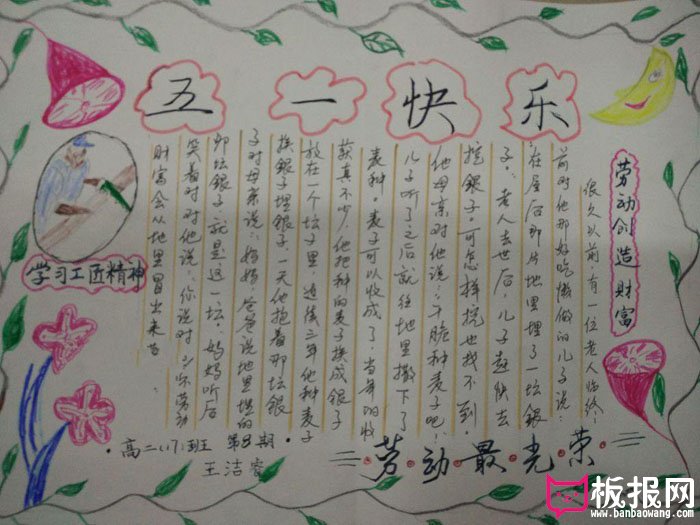 五一快乐
劳动创造财富
很久以前,有一位老人临终
前对他那好吃懒做的儿子说:
在屋后那片地里埋了一坛银
子。老人去世后,儿子赶快去
挖銀子。可怎样挖也找不到
他母亲对他说:干脆种麦子吧!
儿子听了之后就往地里撒下了
麦种。麦子可以收成了。当年的收
获真不少,他把种的麦子换成銀子
放在一个坛子里,连续三年他种麦子
换銀子埋銀子。一天他抱着那坛銀
子对母亲说:妈妈,爸爸说地里埋的
那坛銀子就是这一坛,妈妈听后
笑着对对他说:你说对
劳动
财富会从地里冒出来
学习工匠精神
高二(17)班 第8期
王洁
劳动最光荣
板报网
www.banbaowang.com